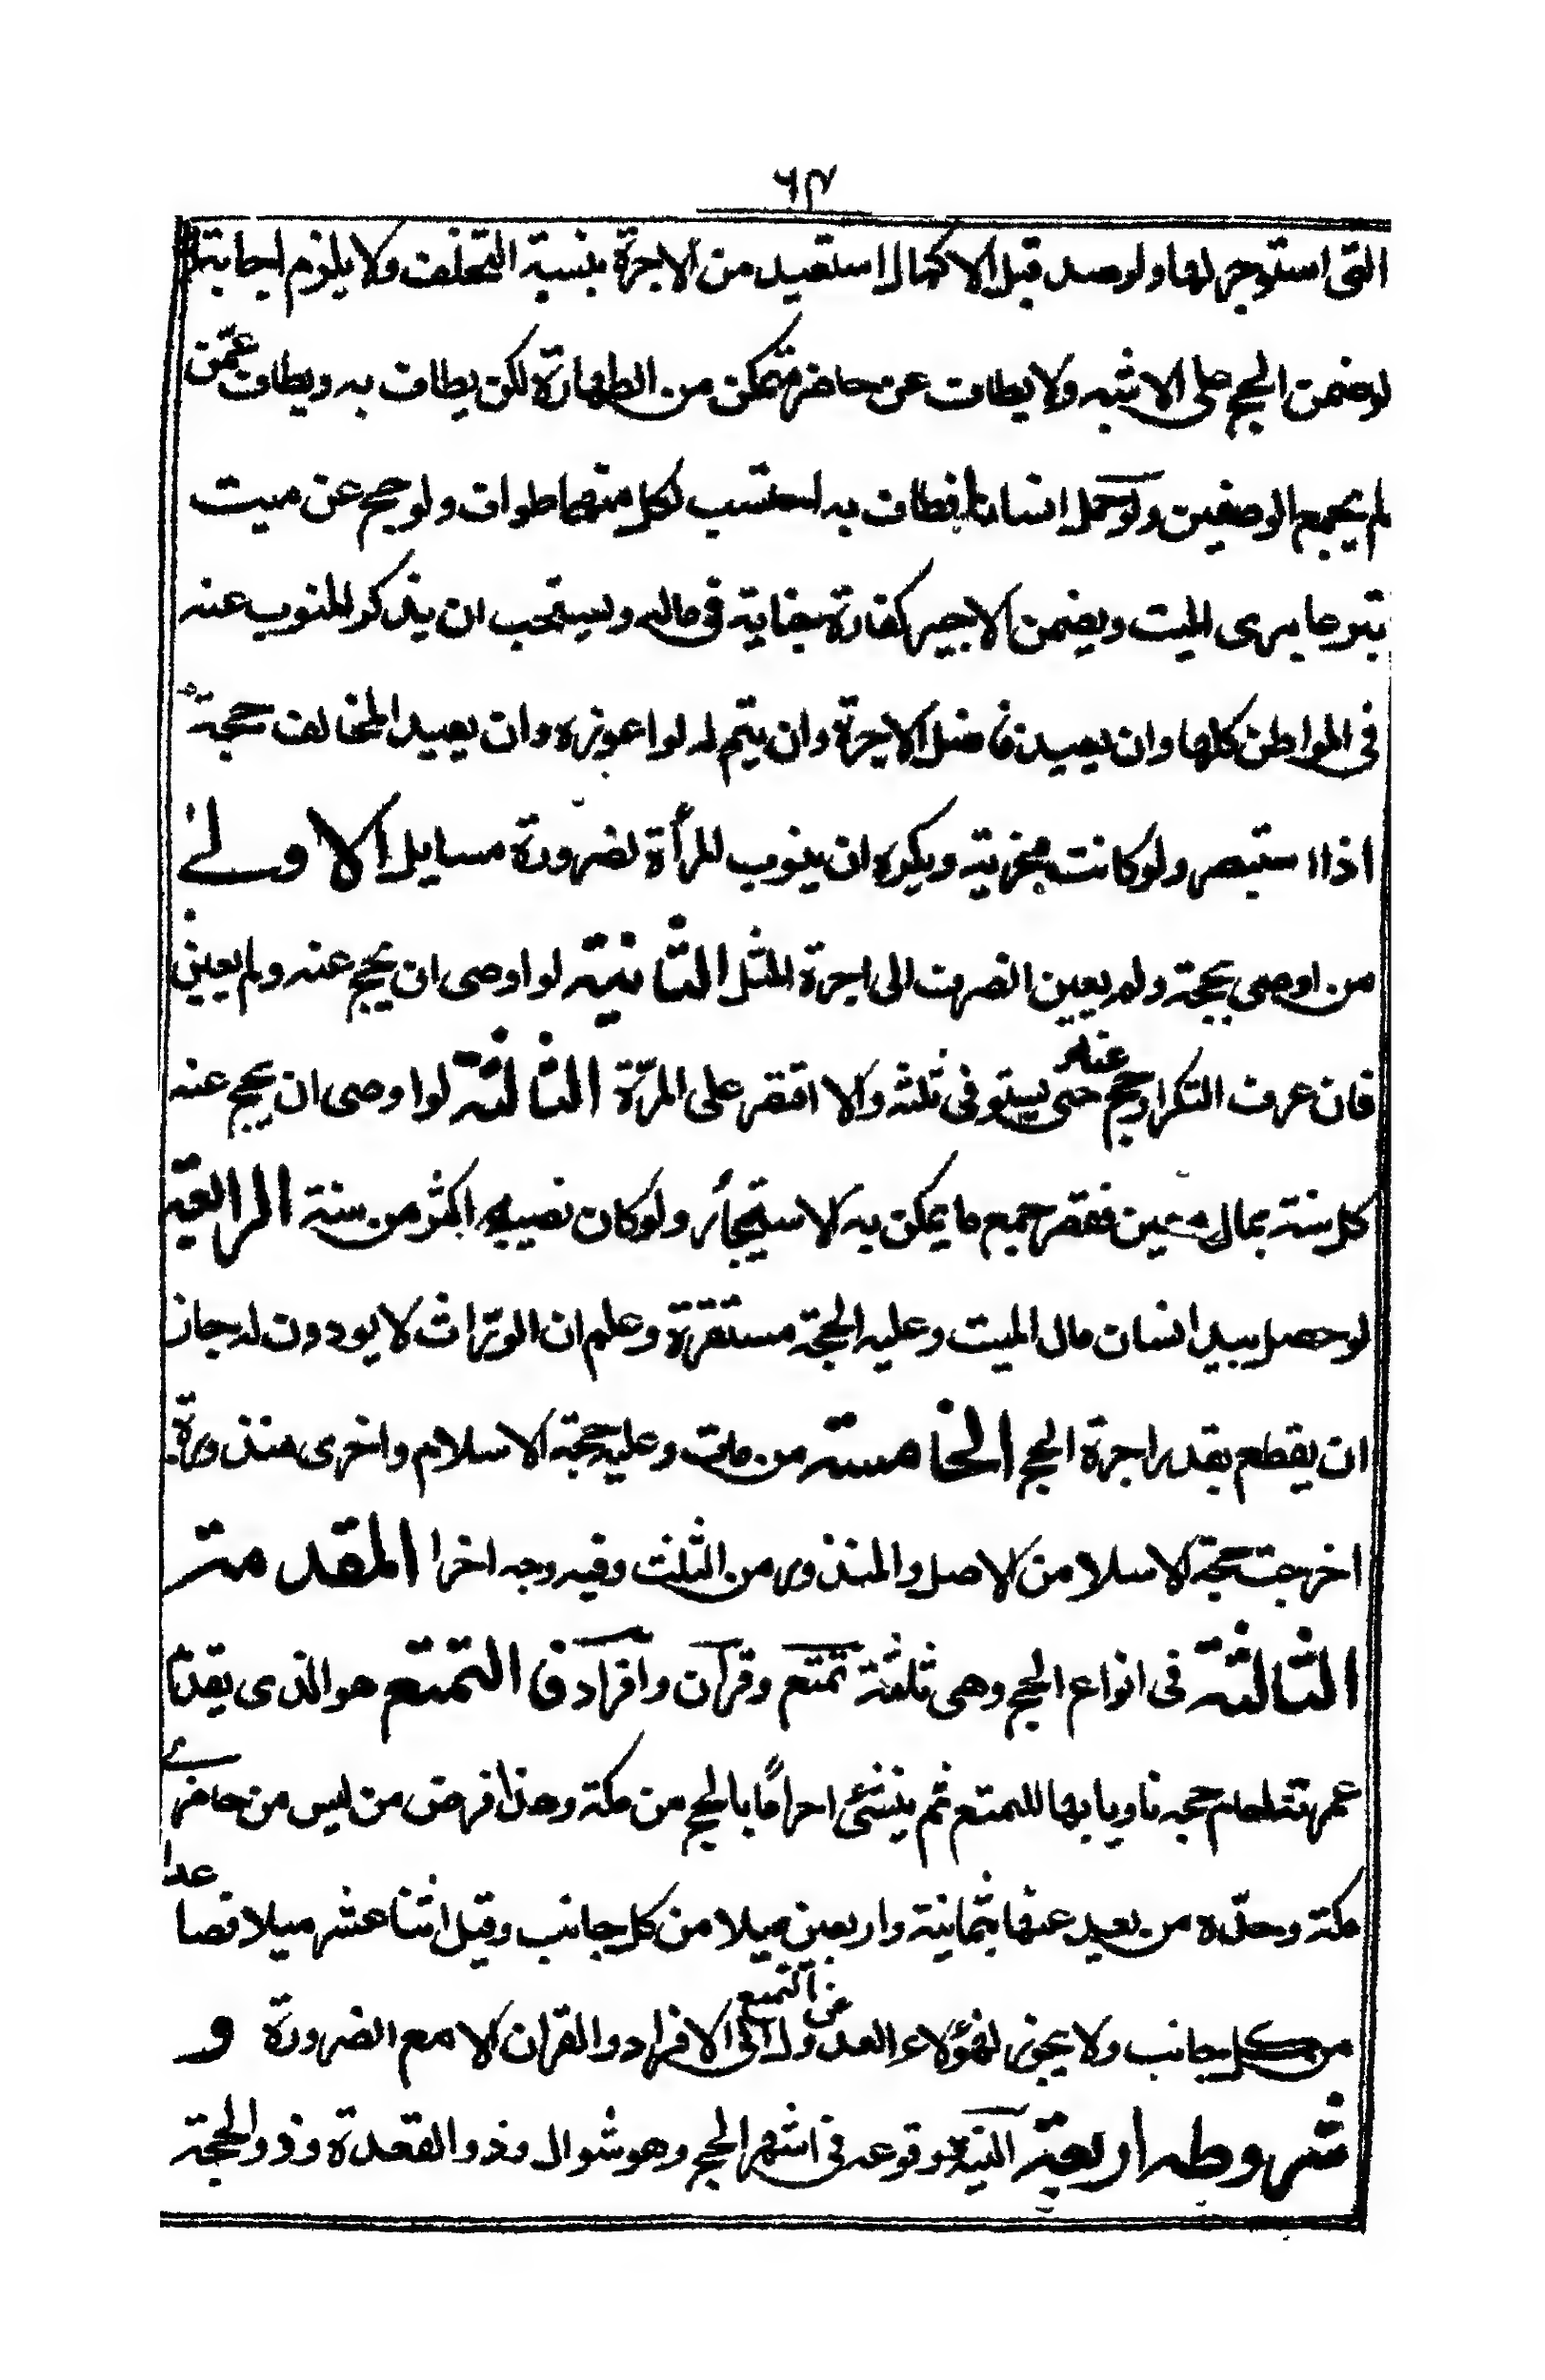 ٦٣
التى استوجر لها ولو صد قبل الاكمال استعيد من الاجرة بنسبة التخلف ولا يلزم اجابته
لو ضمن الحج على الاشبه ولا يطاف عن حاضر متمكن من الطهارة لكن يطاف به ويطاف عمّن
لم يجمع الوصفين ولو حمل انسانا فطاف به احتسب لكل منهما طواف ولو حج عن ميت
تبرعا برى الميت ويضمن الاجير كفارة جناية فى ماله ويستحب ان يذكر المنوب عنه
فى المواطن كلها وان يعيد فاضل الاجرة وان يتم له لو اعوزه وان يعيد المخالف حجته
اذا استبصر ولو كانت مجزية ويكره ان ينوب المرأة لضرورة مسايل الاولے
من اوصى بحجة ولم يعين انصرف الى اجرة المثل الثانية لو اوصى ان يحج عنه ولم يعين
فان عرف التكرار حج عنه حتى يستوفى ثلثه والا اقتصر على المرّة الثالثة لو اوصى ان يحج عنه
كل سنة بمال معين فقصر جمع ما يمكن به الاستيجار ولو كان نصيب اكثر من سنة الرابعة
لو حصل بيد انسان مال الميت وعليه الحجة مستقرة وعلم ان الورّاث لا يودون له جاز
ان يقطع بقدر اجرة الحج الخامسة من مات وعليه حجة الاسلام واخرى منذورة
اخرجت حجة الاسلام من الاصل والمنذور من الثلث وفيه وجه اخر المقدمة
الثالثة فى انواع الحج وهى ثلثة تمتع وقرآن وافراد ف التمتع هو الذى يقدم
عمرته امام حجه ناويا بها للتمتع ثم ينشئ احراماً بالحج من مكة وهذا فرض من ليس من حاضرے
مكة وحدّه من بعد عنها بثمانية واربعين ميلا من كل جانب وقيل اثنا عشر ميلا فصاعدا
من كل جانب ولا يجوز لهؤلاء العدول عن التمتع الى الافراد والقران الا مع الضرورة و
شروطه اربعة النية ووقوعه فى اشهر الحج وهو شوال وذو القعدة وذو الحجة